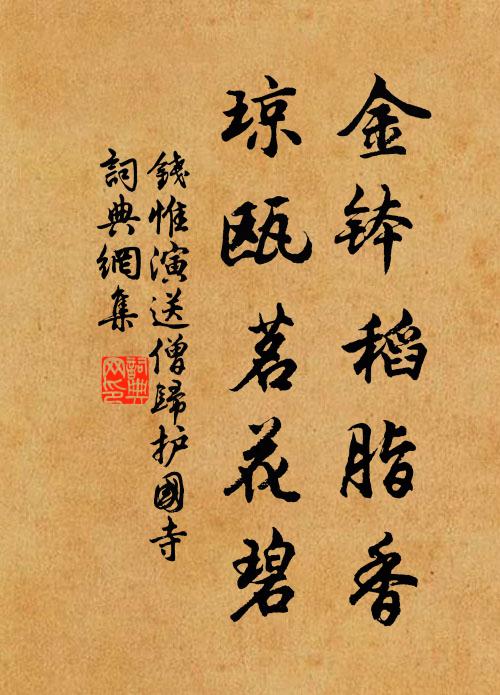 金钵稻脂香
琼瓯茗花碧
錢惟演送僧歸护國寺
詞典網集
詞典网印